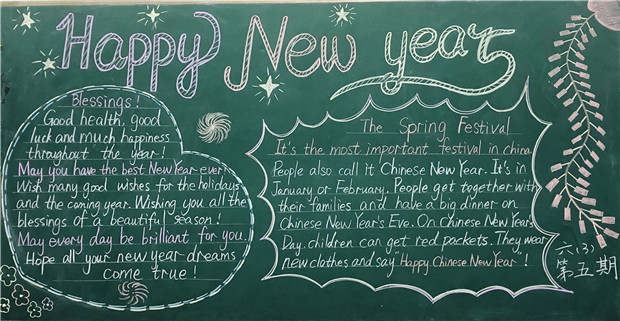 Happy New year
Blessings!
Good health, good
luck and much happiness
throughout the year!
May you have the best New Year ever!
Wish many good wishes for the holidays
and the coming year. Wishing you all the
blessings of a beautiful season!
May every day be brilliant for you.
Hope all your new year dreams
come true!
The Spring Festival
It's the most important festival in china.
People also call it Chinese New Year. It's in
January or February. People get together with
their families and have a big dinner on
Chinese New Year's Eve. On Chinese New Year's
Day. children can get red packets. They wear
new clothes and say "Happy Chinese New Year"!
六(3)
第五期